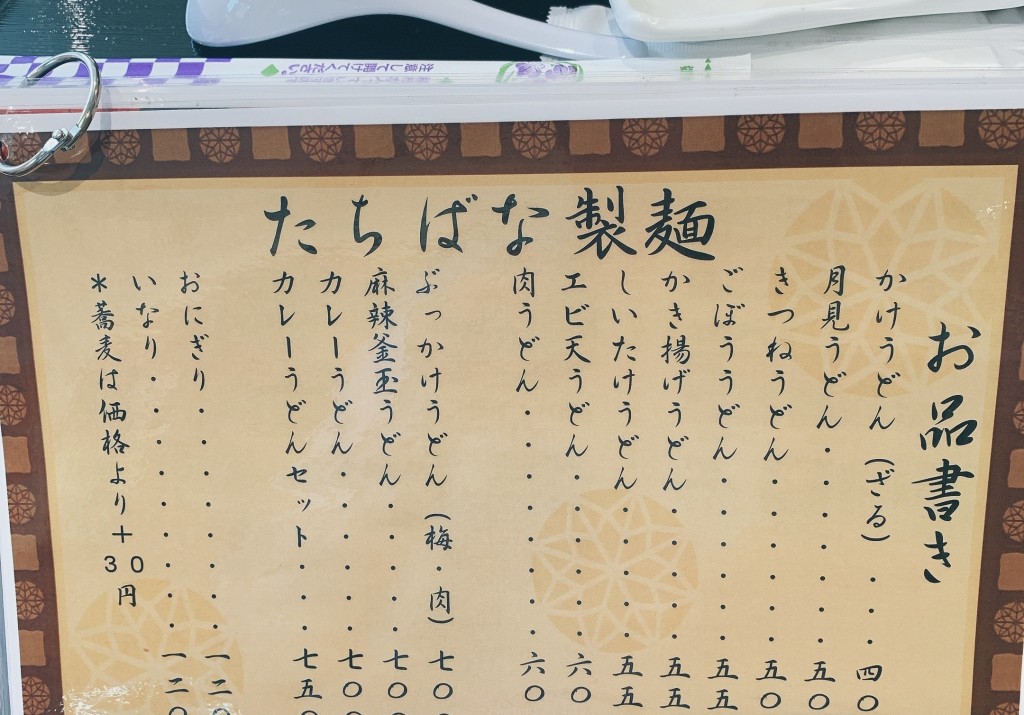 たちばな製麺
お品書き
かけうどん（ざる）・・・四〇
月見うどん・・・・・・・五〇
きつねうどん・・・・・・五〇
ごぼううどん・・・・・・五五
かき揚げうどん・・・・・五五
しいたけうどん・・・・・五五
エビ天うどん・・・・・・六〇
肉うどん・・・・・・・・六〇
ぶっかけうどん（梅・肉）七〇
麻辣釜玉うどん・・・・・七〇
カレーうどん・・・・・・七〇
カレーうどんセット・・・七五
おにぎり・・・・・・・・一二〇
いなり・・・・・・・・・一二〇
＊蕎麦は価格より＋３０円